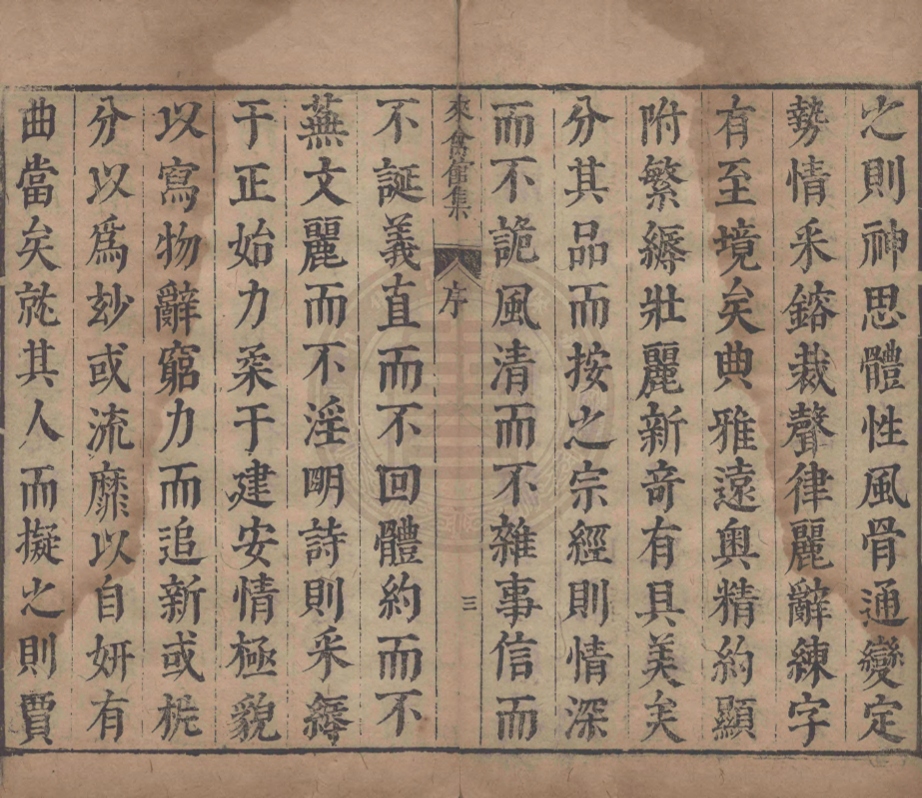 之則神思體性風骨通變定
勢情采鎔裁聲律麗辭練字
有至境矣典雅遠奧精約顯
附繁縟壯麗新竒有具美矣
分其品而按之宗經則情深
而不詭風清而不雜事信而
來禽館集
序
三
不誕義直而不回體約而不
蕪文麗而不淫明詩則采縟
于正始力柔于建安情極貌
以寫物辭窮力而追新或析
分以爲玅或流靡以自妍有
曲當矣就其人而擬之則賈